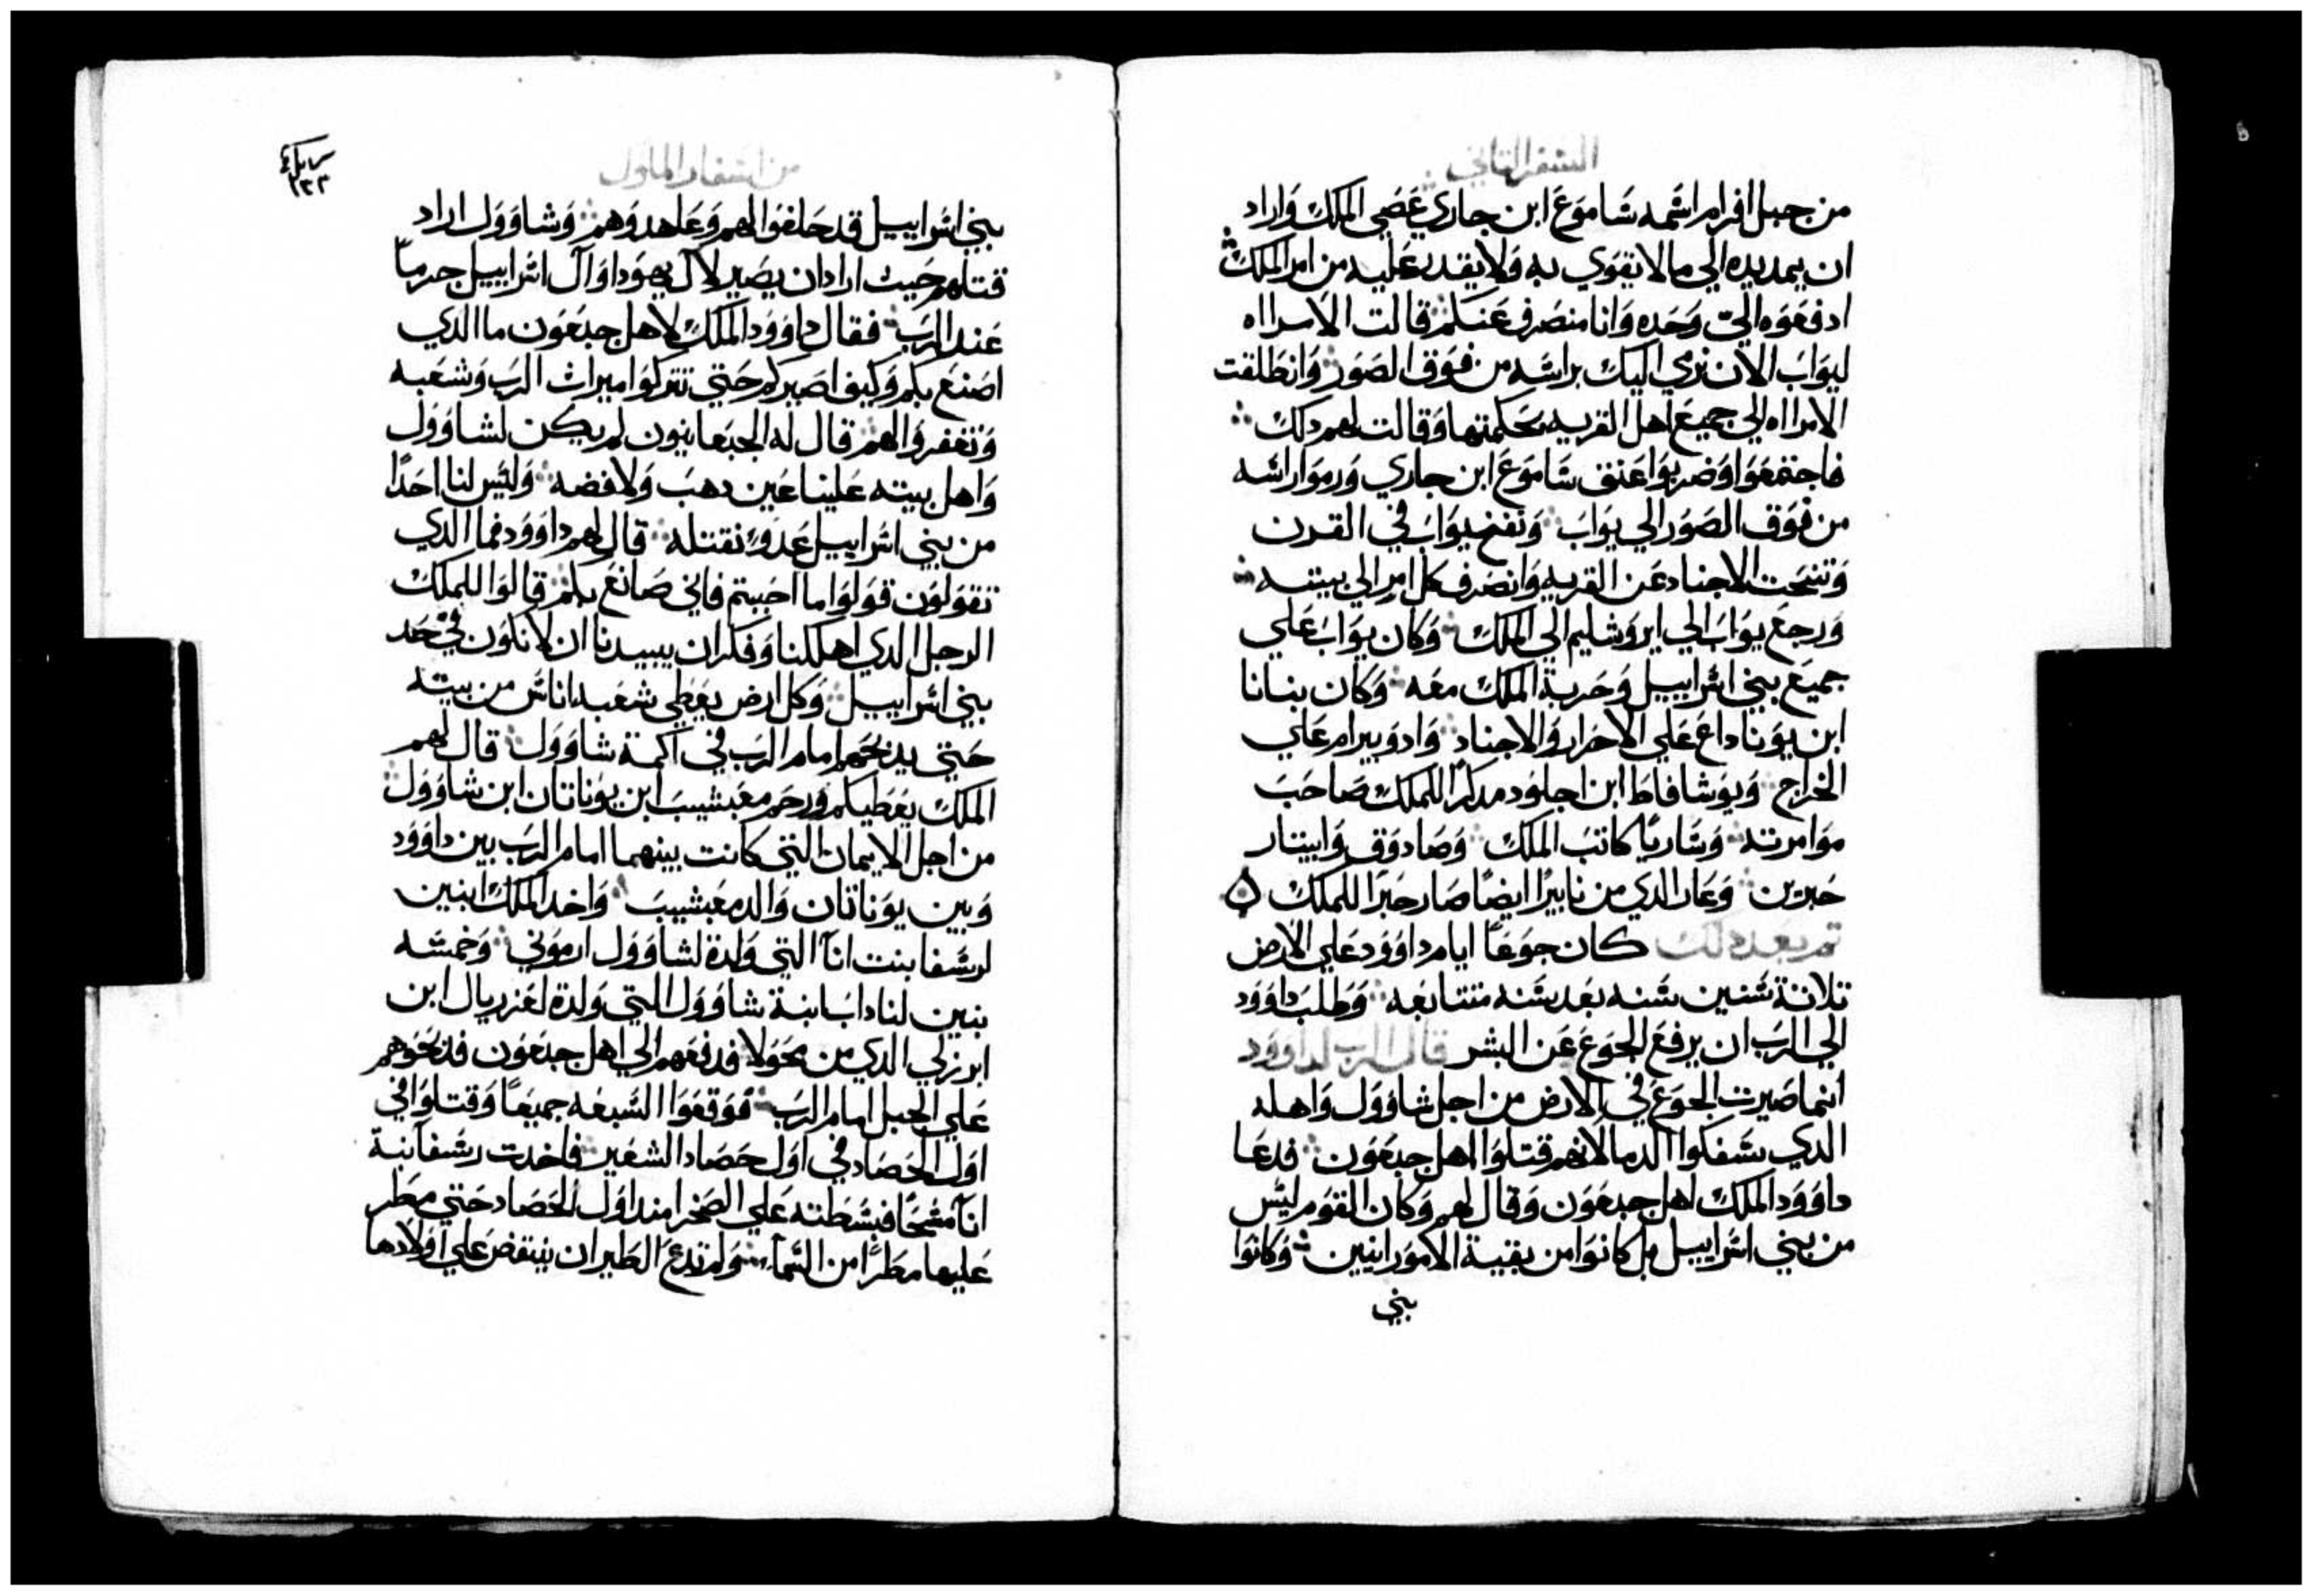 السفر الثاني
من جبل افرام اسمه شاموع ابن جاري عصي الملك واراد
ان يمد يده الي ما لا يقوي به ولا يقدر عليه من امر الملك
ادفعوه اليّ وحده وانا منصرف عنكم قالت الامراه
ليواب الان نرمي اليك براسه من فوق الصور وانطلقت
الامراه الي جميع اهل القريه بحكمتها وقالت لهم دلك
فاجتمعوا وضربوا عنق شاموع ابن جاري ورموا راسه
من فوق الصور الي يواب ونفخ يواب في القرن
وتنحت الاجناد عن القريه وانصرف كل امر الي بيته
ورجع يواب الي ايروشليم الي الملك وكان يواب علي
جميع بني اسراييل وحربة الملك معه وكان بنانا
ابن يوناداع علي الاحرار والاجناد وادوبيرام علي
الخراج ويوشافاط ابن اجلود مدكرا للملك صاحب
موامرته وساريا كاتب الملك وصادوق وابيتار
حبرين وعار الدي من نابيرا ايضا صار حبرا للملك
تم بعد دلك كان جوعا ايام داوود علي الارض
تلاتة سنين سنه بعد سنه متتابعه وطلب داوود
الي الرب ان يرفع الجوع عن البشر قال الرب لداوود
انما صيرت الجوع في الارض من اجل شاوول واهله
الدي سفكوا الدما لانهم قتلوا اهل جبعون فدعا
داوود الملك اهل جبعون وقال لهم وكان القوم ليس
من بني اسراييل بل كانوا من بقية الامورانيين وكانوا
بني
من اسفار الملوك
١٢٣
بني اسراييل قد حلفوا لهم وعاهدوهم وشاوول اراد
قتلهم حيث اراد ان يصير لال يهودا وال اسراييل جرما
عند الرب فقال داوود الملك لاهل جبعون ما الدي
اصنع بكم وكيف اصيركم حتي تتركوا ميراث الرب وشعبه
وتغفروا لهم قال له الجبعانيون لم يكن لشاوول
واهل بيته علينا عين دهب ولا فضه وليس لنا احدا
من بني اسراييل عدو نقتله قال لهم داوود فما الدي
تقولون قولوا ما احببتم فاني صانع بكم قالوا للملك
الرجل الدي اهلكنا وفكر ان يبيدنا ان لا نكون في حد
بني اسراييل وكل ارض يعطي شعبه اناس من بيته
حتي يدبحهم امام الرب في اكمة شاوول قال لهم
الملك يعطيكم ورحم مغبشيب ابن يوناتان ابن شاوول
من اجل الايمان التي كانت بينهما امام الرب بين داوود
وبين يوناتان والد مغبشيب واخد الملك ابنين
لرسفا بنت انا التي ولدة لشاوول ارموني وخمسه
بنين لناداب ابنة شاوول التي ولدة لعزريال ابن
ابرزلي الدي من محولا فدفعهم الي اهل جبعون فدبحوهم
علي الجبل امام الرب فوقعوا السبعه جميعا وقتلوا في
اول الحصاد في اول حصاد الشعير فاخدت رسفا ابنة
انا مسحا فبسطته علي الصخرا مند اول الحصاد حتي مطر
عليها مطرا من السما ولم تدع الطير ان ينقض علي اولادها